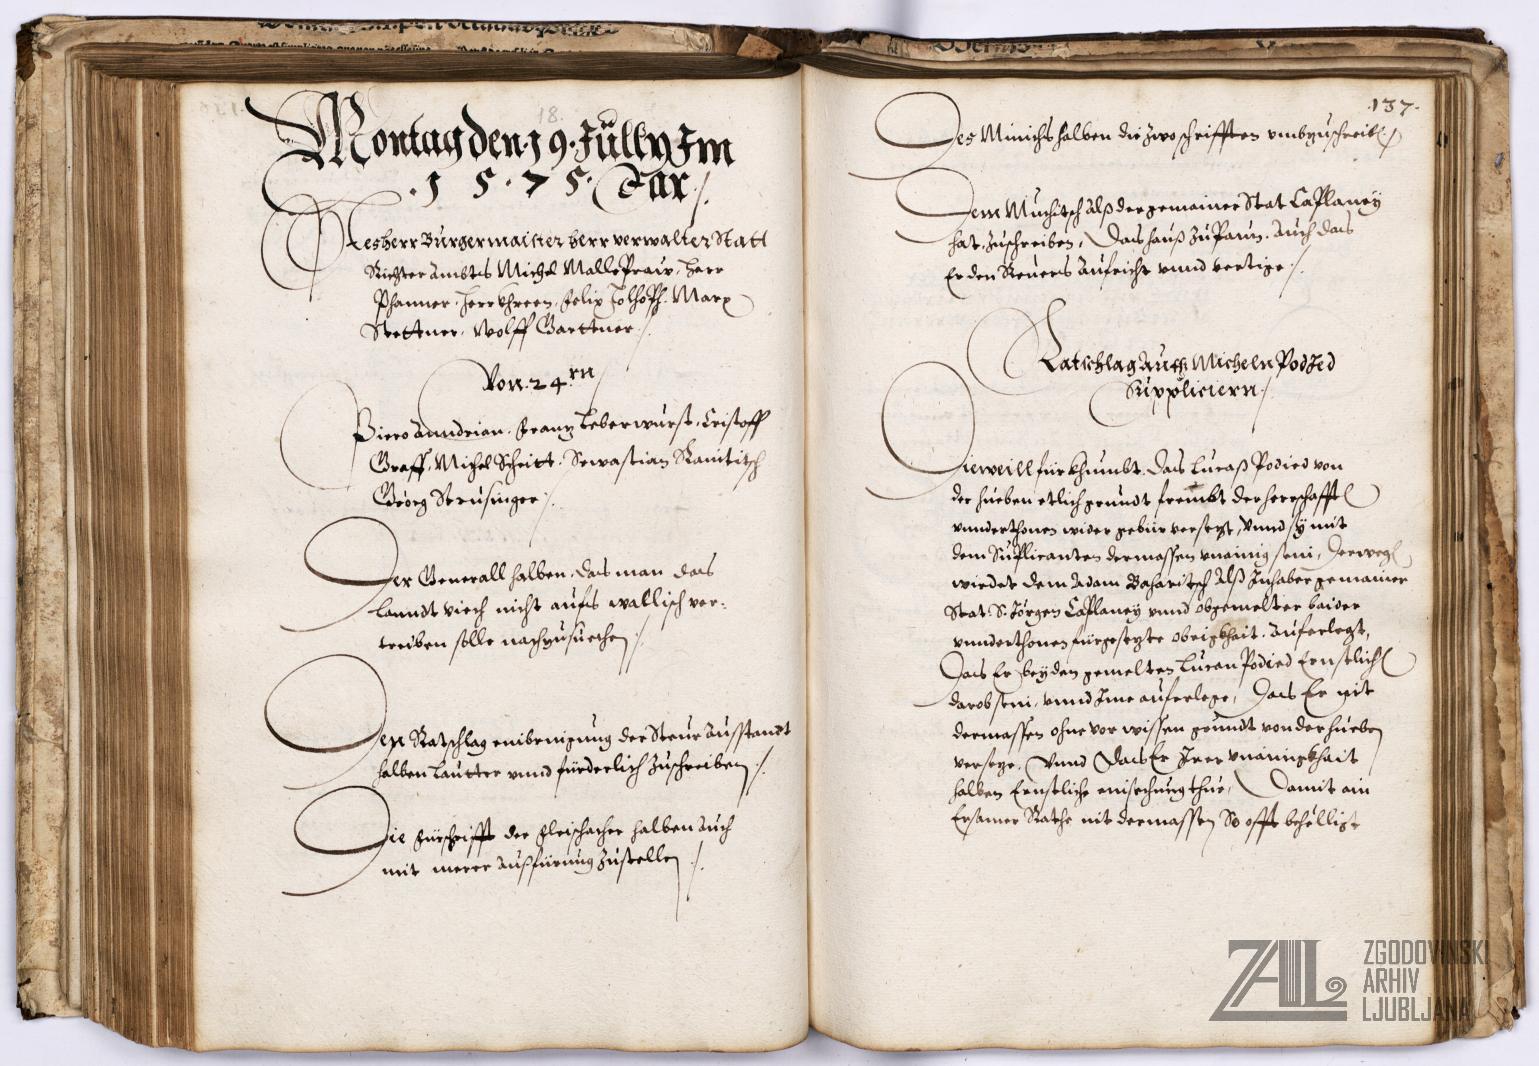 18.
Montag den .19. Jully Im
.1575. Jar ./.
herr Burgermaister herr verwalter Statt
Richter Ambts Michel Mallepraur. herr
Phanner. herr Khreen. Felix Marx
Stettner. Wolff Garttner ./.
Von .24.rn
Piero Anndrian. Franz Leberwurst. Cristoff
Graff. Michel Schritt. Sewastian
Georg Strusinger ./.
Der Generall halben. das man das
lanndt viech nicht aufs wallisch ver-
treiben solle nachzusuechen ./.
Den Ratschlag der Steur Ausstandt
halben lautter unnd fürderlich zuschreiben ./.
Die fürschrifft der fleischacher halben auch
mit merer Außfürung zustellen ./.
.137.
Des Münichs halben die zwo schrifften umbzuschreiben ./.
Dem Muchitsch Alß der gemainer Stat Caplaney
hat. zuschreiben, Das hauß zu Paun. Auch das
Er den Revers aufricht unnd vertige ./.
Ratschlag Auff Micheln Podjed
Suppliciern ./.
Dieweill fürkhumbt. Das Lucaß Podied von
der hueben etlich grundt frembt der herrschafft
unnderthonen wider gebür versezt, Unnd sy mit
dem Suplicanten dermassen unainig sein, Derwegen
wierdet dem Adam Alß Inhaber gemainer
Stat S. Jörgen Caplaney unnd obgemelter baider
unnderthonen fürgesezte obrigkhait. Auferlegt,
Das Er bey den gemelten Lucan Podied Ernstlich
darob sein, unnd Ime auferlege, Das Er nit
dermassen ohne vorwissen grundt von der hueben
verseze. Unnd Das Er Irer unainigkhait
halben Ernstliche einsechung thue, Damit ain
Ersamer Rathe nit dermassen So offt behelligt
ZAL
ZGODOVINSKI
ARHIV
LJUBLJANA